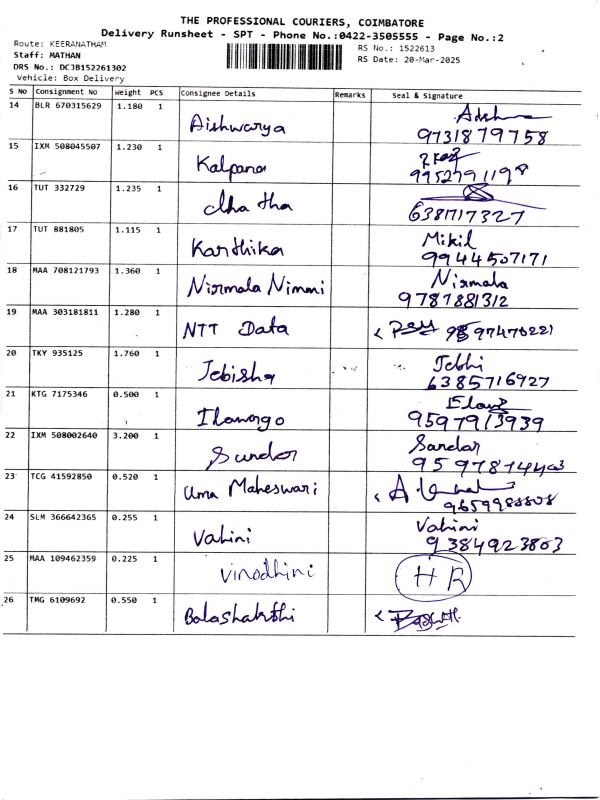 THE PROFESSIONAL COURIERS, COIMBATORE
Delivery Runsheet - SPT - Phone No.:0422-3505555 - Page No.:2
Route: KEERANATHAM
Staff: MATHAN
DRS No.: DCJB152261302
Vehicle: Box Delivery
RS No.: 1522613
RS Date: 20-Mar-2025
S No Consignment No Weight PCS Consignee Details Remarks Seal & Signature
14 BLR 670315629 1.180 1 Aishwarya
9731879758
15 IXM 508045507 1.230 1 Kalpana
9952791198
16 TUT 332729 1.235 1
6381717327
17 TUT 881805 1.115 1 Karthika Mikil
9944507171
18 MAA 708121793 1.360 1 Nirmala Nimmi Nirmala
9787881312
19 MAA 303181811 1.280 1 NTT Data
20 TKY 935125 1.760 1 Jebisha Jebhi
6385716927
21 KTG 7175346 0.500 1 Ilavargo
9597913939
22 IXM 508002640 3.200 1 Sundar Sandar
23 TCG 41592850 0.520 1 Uma Maheswari
24 SLM 366642365 0.255 1 Vahini Vahini
9384923803
25 MAA 109462359 0.225 1 Vinodhini HR
26 TMG 6109692 0.550 1 Balashakthi